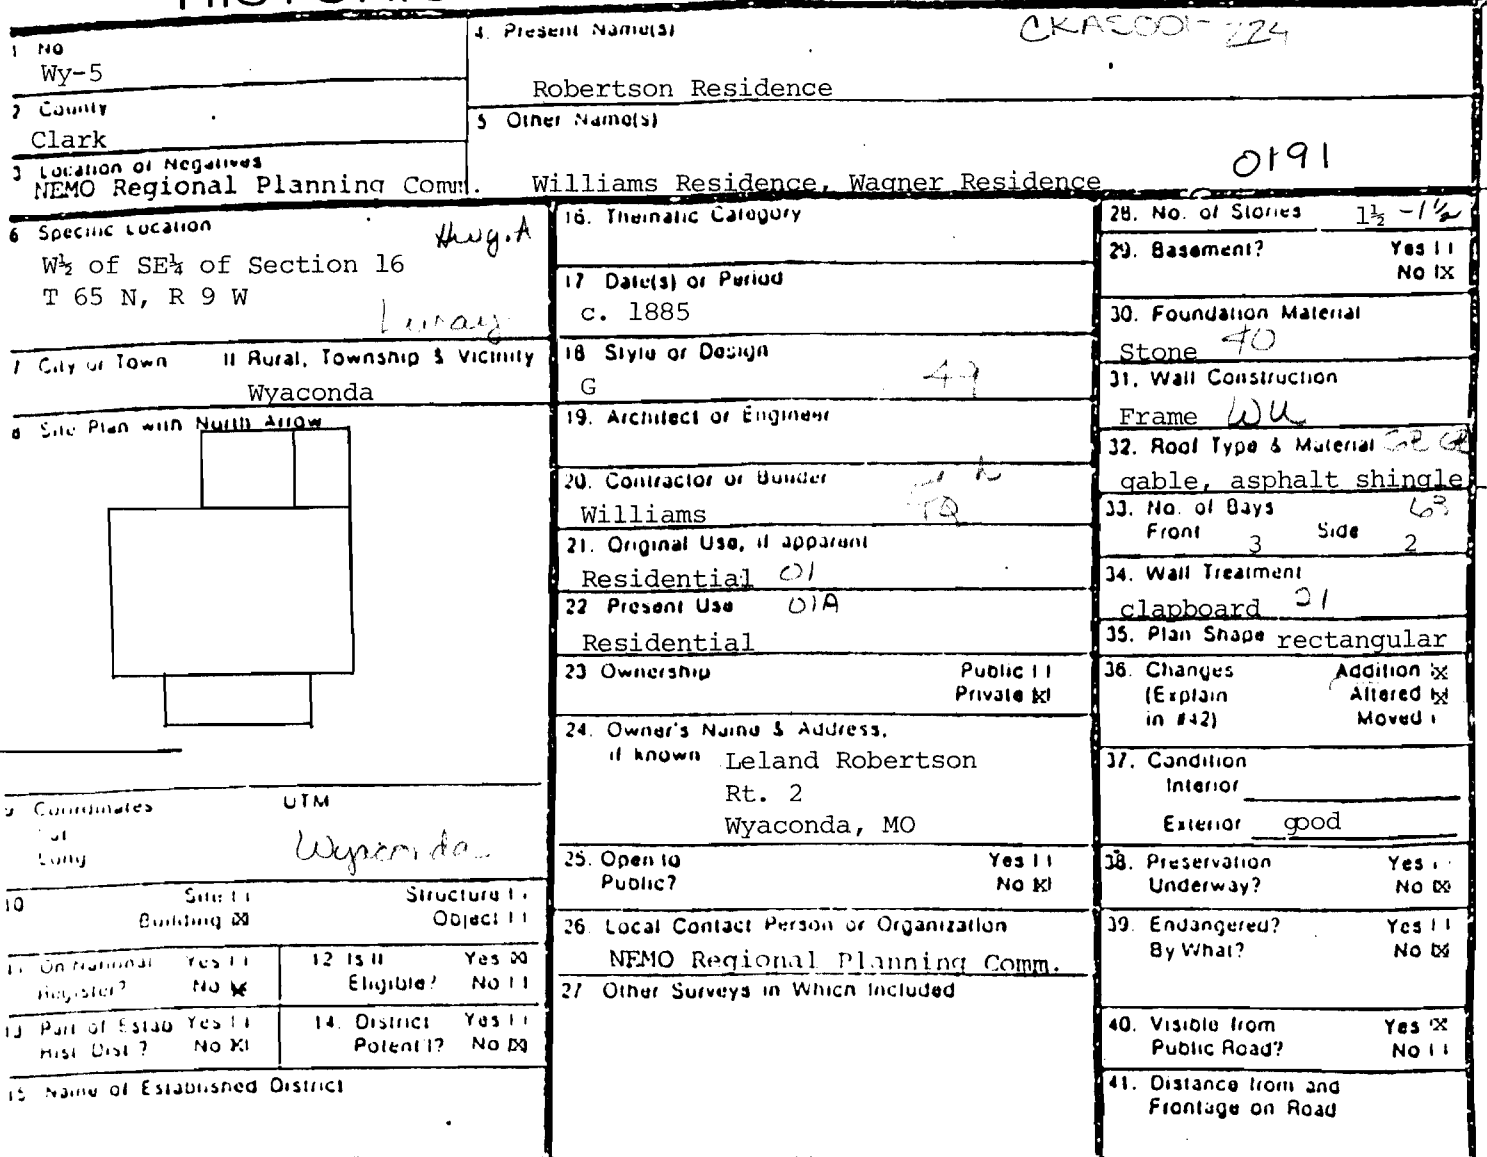 1 No
Wy-5
2 County
Clark
3 Location of Negatives
NEMO Regional Planning Comm.
4. Present Name(s)
CKAS001-224
Robertson Residence
5 Other Name(s)
0191
Williams Residence, Wagner Residence
6 Specific Location
Hwy. A
W½ of SE¼ of Section 16
T 65 N, R 9 W
Luray
7 City or Town If Rural, Township & Vicinity
Wyaconda
8 Site Plan with North Arrow
9 Coordinates UTM
Lat
Long
Wyaconda
10 Site [ ] Structure [ ]
Building [X] Object [ ]
11 On National Register? Yes [ ] No [X]
12 Is It Eligible? Yes [X] No [ ]
13 Part of Estab Hist Dist? Yes [ ] No [X]
14. District Potent'l? Yes [ ] No [X]
15 Name of Established District
16. Thematic Category
17 Date(s) or Period
c. 1885
18 Style or Design
G 49
19. Architect or Engineer
20. Contractor or Builder
Williams
21. Original Use, if apparent
Residential 01
22 Present Use 01A
Residential
23 Ownership Public [ ]
Private [X]
24. Owner's Name & Address,
if known Leland Robertson
Rt. 2
Wyaconda, MO
25. Open to Yes [ ]
Public? No [X]
26. Local Contact Person or Organization
NEMO Regional Planning Comm.
27 Other Surveys in Which Included
28. No. of Stories 1½ - 1½
29. Basement? Yes [ ]
No [X]
30. Foundation Material
Stone 40
31. Wall Construction
Frame WU
32. Roof Type & Material
gable, asphalt shingle
33. No. of Bays 63
Front 3 Side 2
34. Wall Treatment
clapboard 21
35. Plan Shape rectangular
36. Changes Addition [X]
(Explain Altered [X]
in #42) Moved [ ]
37. Condition
Interior
Exterior good
38. Preservation Yes [ ]
Underway? No [X]
39. Endangered? Yes [ ]
By What? No [X]
40. Visible from Yes [X]
Public Road? No [ ]
41. Distance from and
Frontage on Road